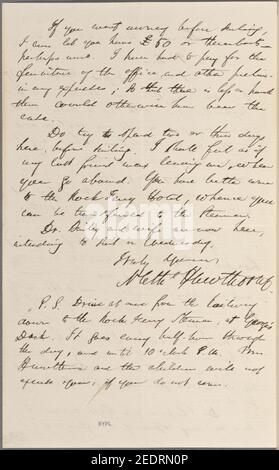 If you want money before sailing,
I can let you have £50 or thereabouts—
perhaps more. I have had to pay for the
furniture of the office and other prelim-
inary expenses; so that there is less on hand
than would otherwise have been the
case.
Do try to spend two or three days
here, before sailing. I shall feel as if
my last friend was leaving me, when
you go abroad. You had better come
to the Rock Ferry Hotel, whence you
can be transferred to the steamer.
Dr. and wife are now here,
intending to sail on Wednesday.
Truly Yours,
Nath Hawthorne.
P.S. Drive at once from the railway
down to the Rock Ferry Steamer, at George's
Dock. It goes every half-hour through
the day, and until 10 o'clock P.M. Mrs
Hawthorne and the children will not
excuse you, if you do not come.
NYPL
alamy
Image ID: 2ERDN0P
www.alamy.com